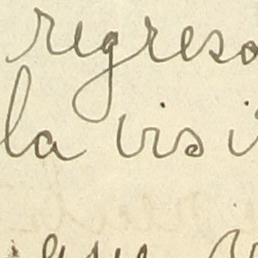 regreso
la visi